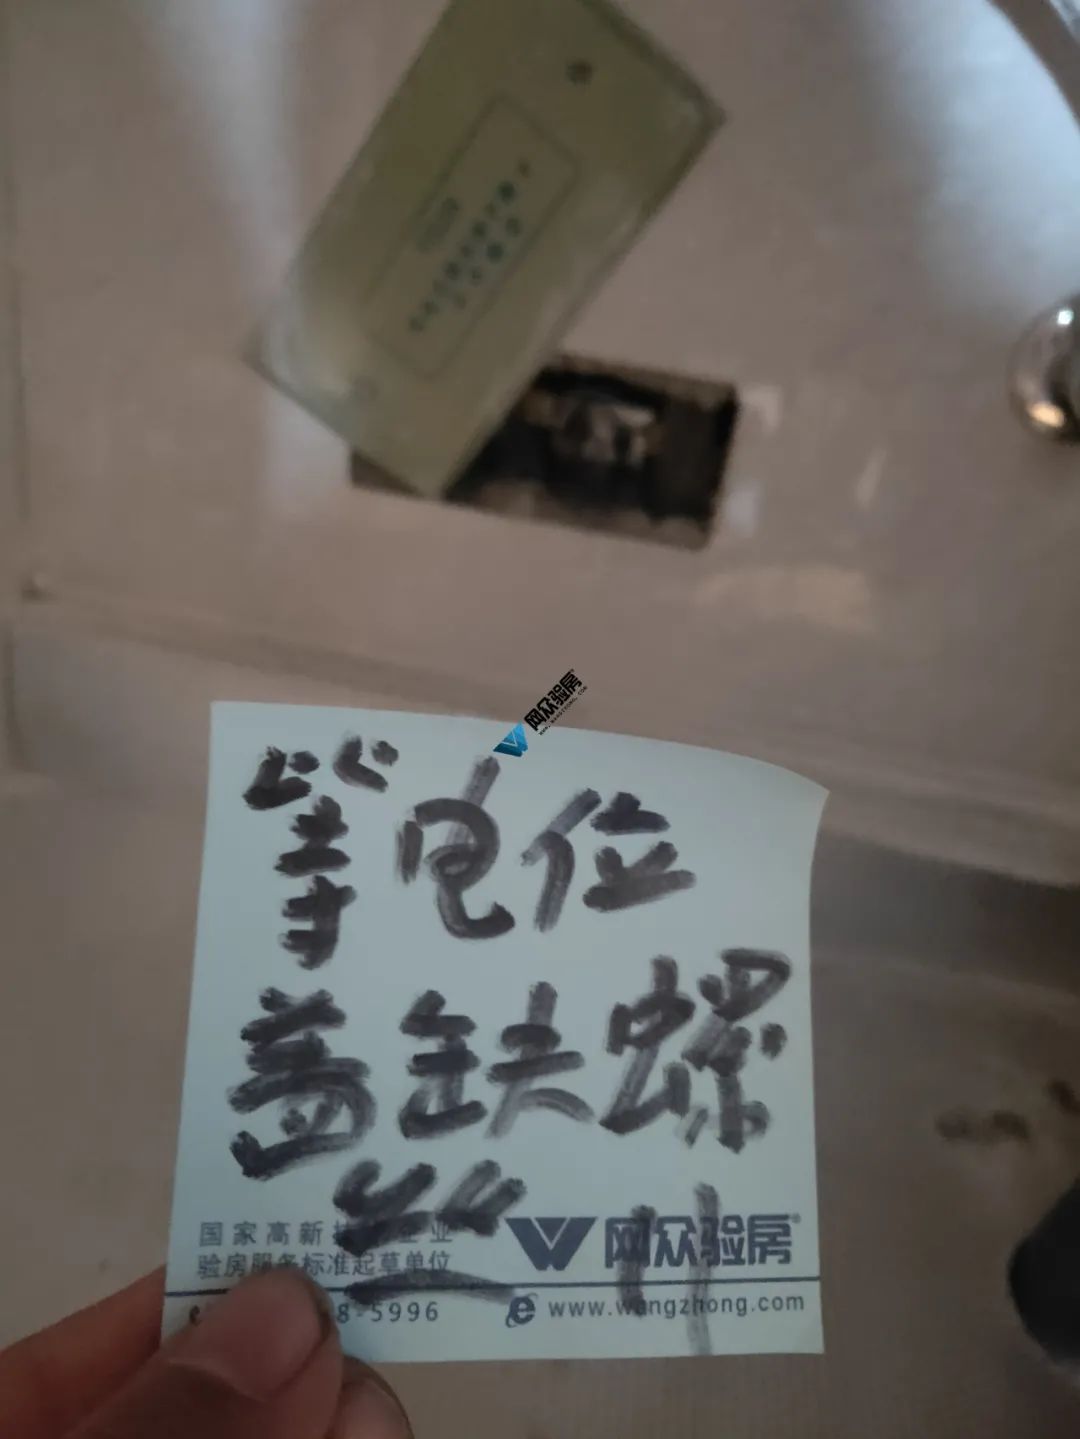 网众验房
WWW.WANGZHONG.COM
等电位
盖缺螺
丝
国家高新技术企业
网众验房
验房服务标准起草单位
8-5996
www.wangzhong.com